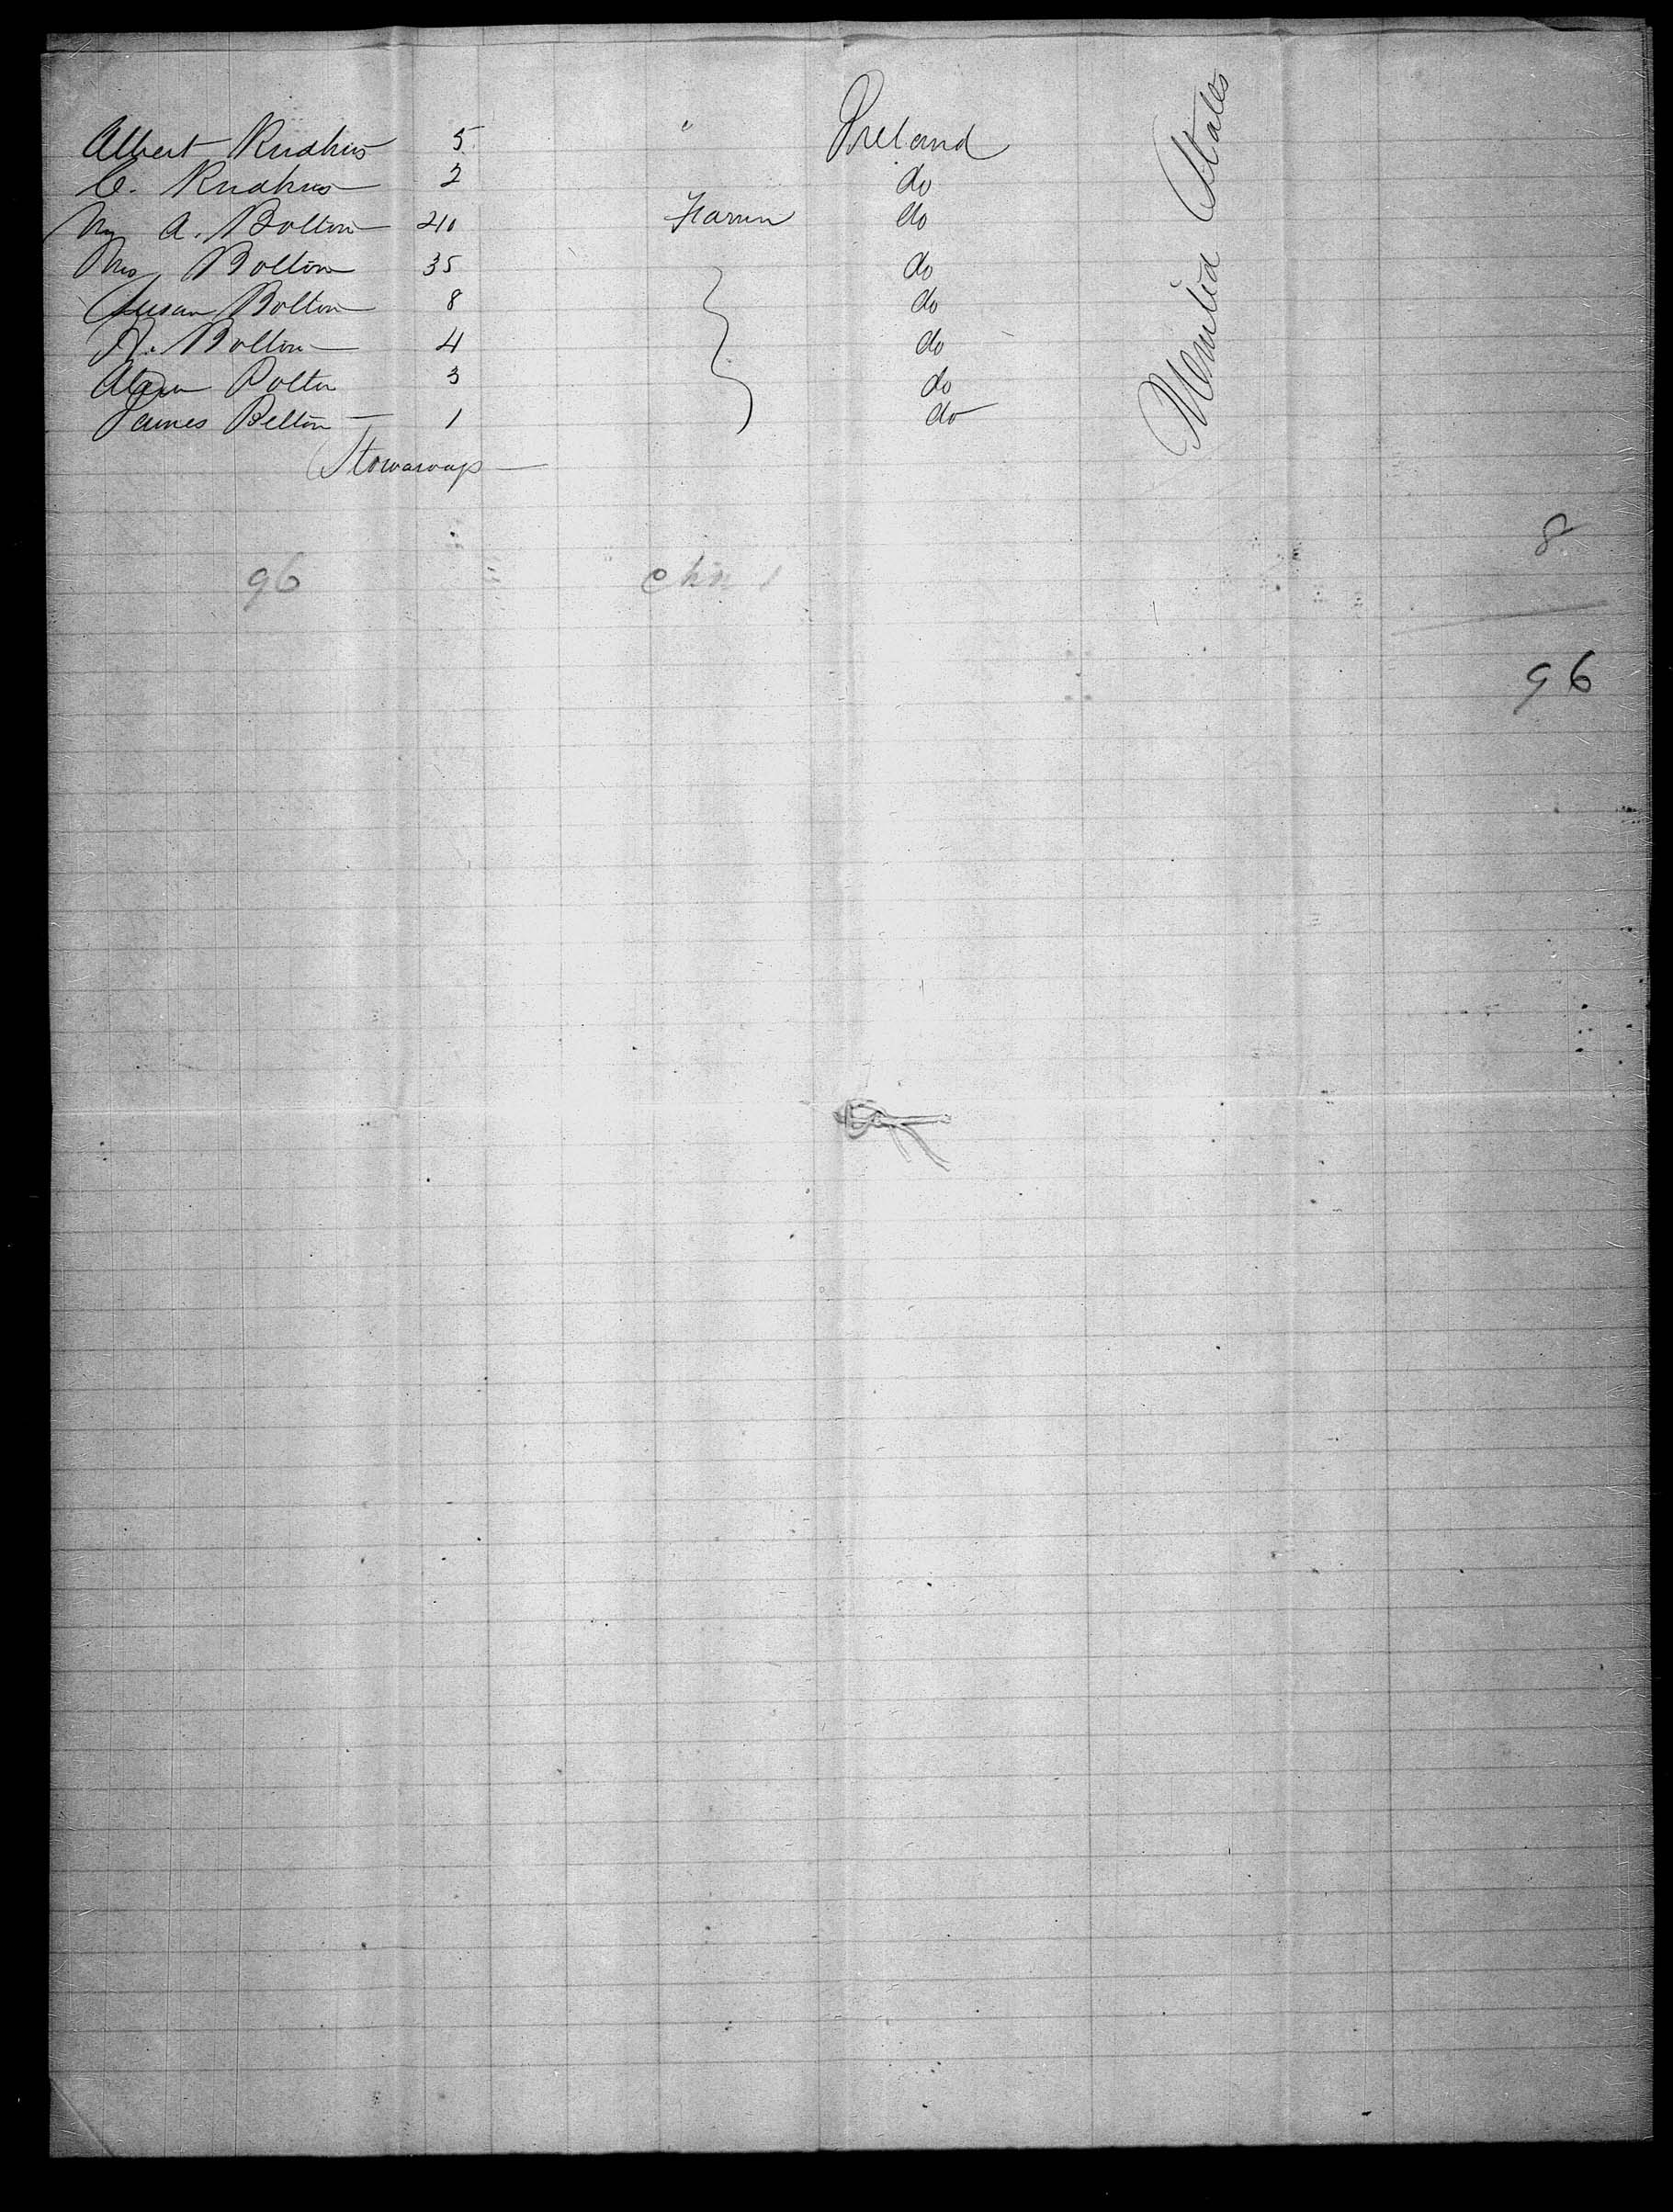 Albert Rudkins 5 " Ireland
C. Rudkins 2 do
Mr A. Bolton 40 Farmer do
Mrs Bolton 35 do
Susan Bolton 8 do
A. Bolton 4 do
Bolton 3 do
James Bolton 1 do
United States
Stowaways
8
96
96